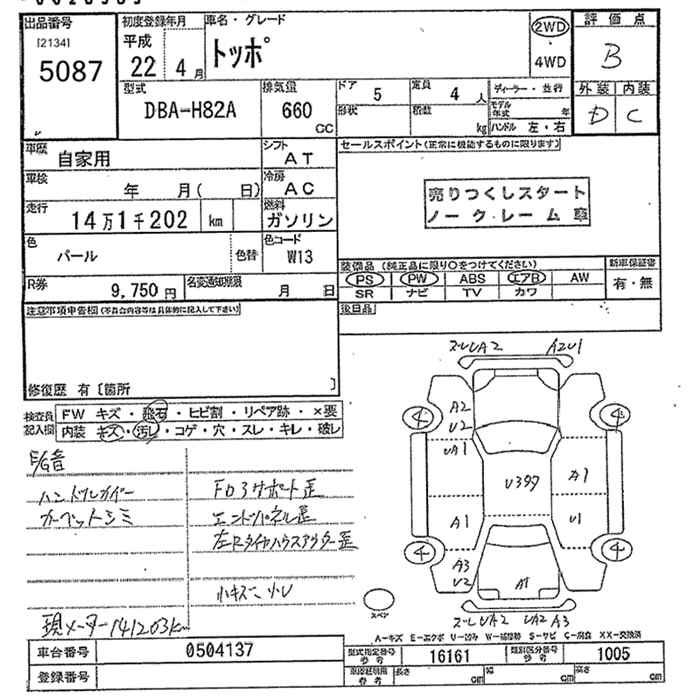 出品番号 初度登録年月 車名・グレード 評価点
[2134] 平成 2WD
5087 22年 4月 トッポ ・ B
4WD
型式 排気量 ドア 定員 ディーラー・並行 外装 内装
DBA-H82A 660 CC 5 4人 モデル年式 年 D C
形状 積載 kg ハンドル 左・右
車歴 自家用 シフト AT セールスポイント(正常に機能するものに限ります)
車検 年 月( 日) 冷房 AC
走行 14万1千202 km 燃料 ガソリン 売りつくしスタート
ノークレーム車
色 パール 色替 色コード W13
装備品(純正品に限り○をつけてください) 新車保証書
R券 9,750円 名変通知期限 月 日 PS PW ABS エアB AW 有・無
SR ナビ TV カワ
注意事項申告欄(不具合内容等は具体的に記入して下さい) 後日品
修復歴 有〔箇所 〕
検査員 FW キズ・飛石・ヒビ割・リペア跡・×要
記入欄 内装 キズ・汚レ・コゲ・穴・スレ・キレ・破レ
ズレUA2 A2U1
A2
U2
UA1
4 4
U3タタ A1
A1 U1
4 4
A3
U2 A1
ズレUA2 UA2 A3
スペア
ハンドルカバー FD3サポート歪
カーペットシミ エンドパネル歪
左Rタイヤハウスアウター歪
小キズ・小U
現メーター141203km
A-キズ E-エクボ U-凹み W-補修跡 S-サビ C-腐食 XX-交換済
車台番号 0504137 型式指定番号 参考 16161 類別区分番号 参考 1005
登録番号 長さ cm 幅 cm 高さ cm